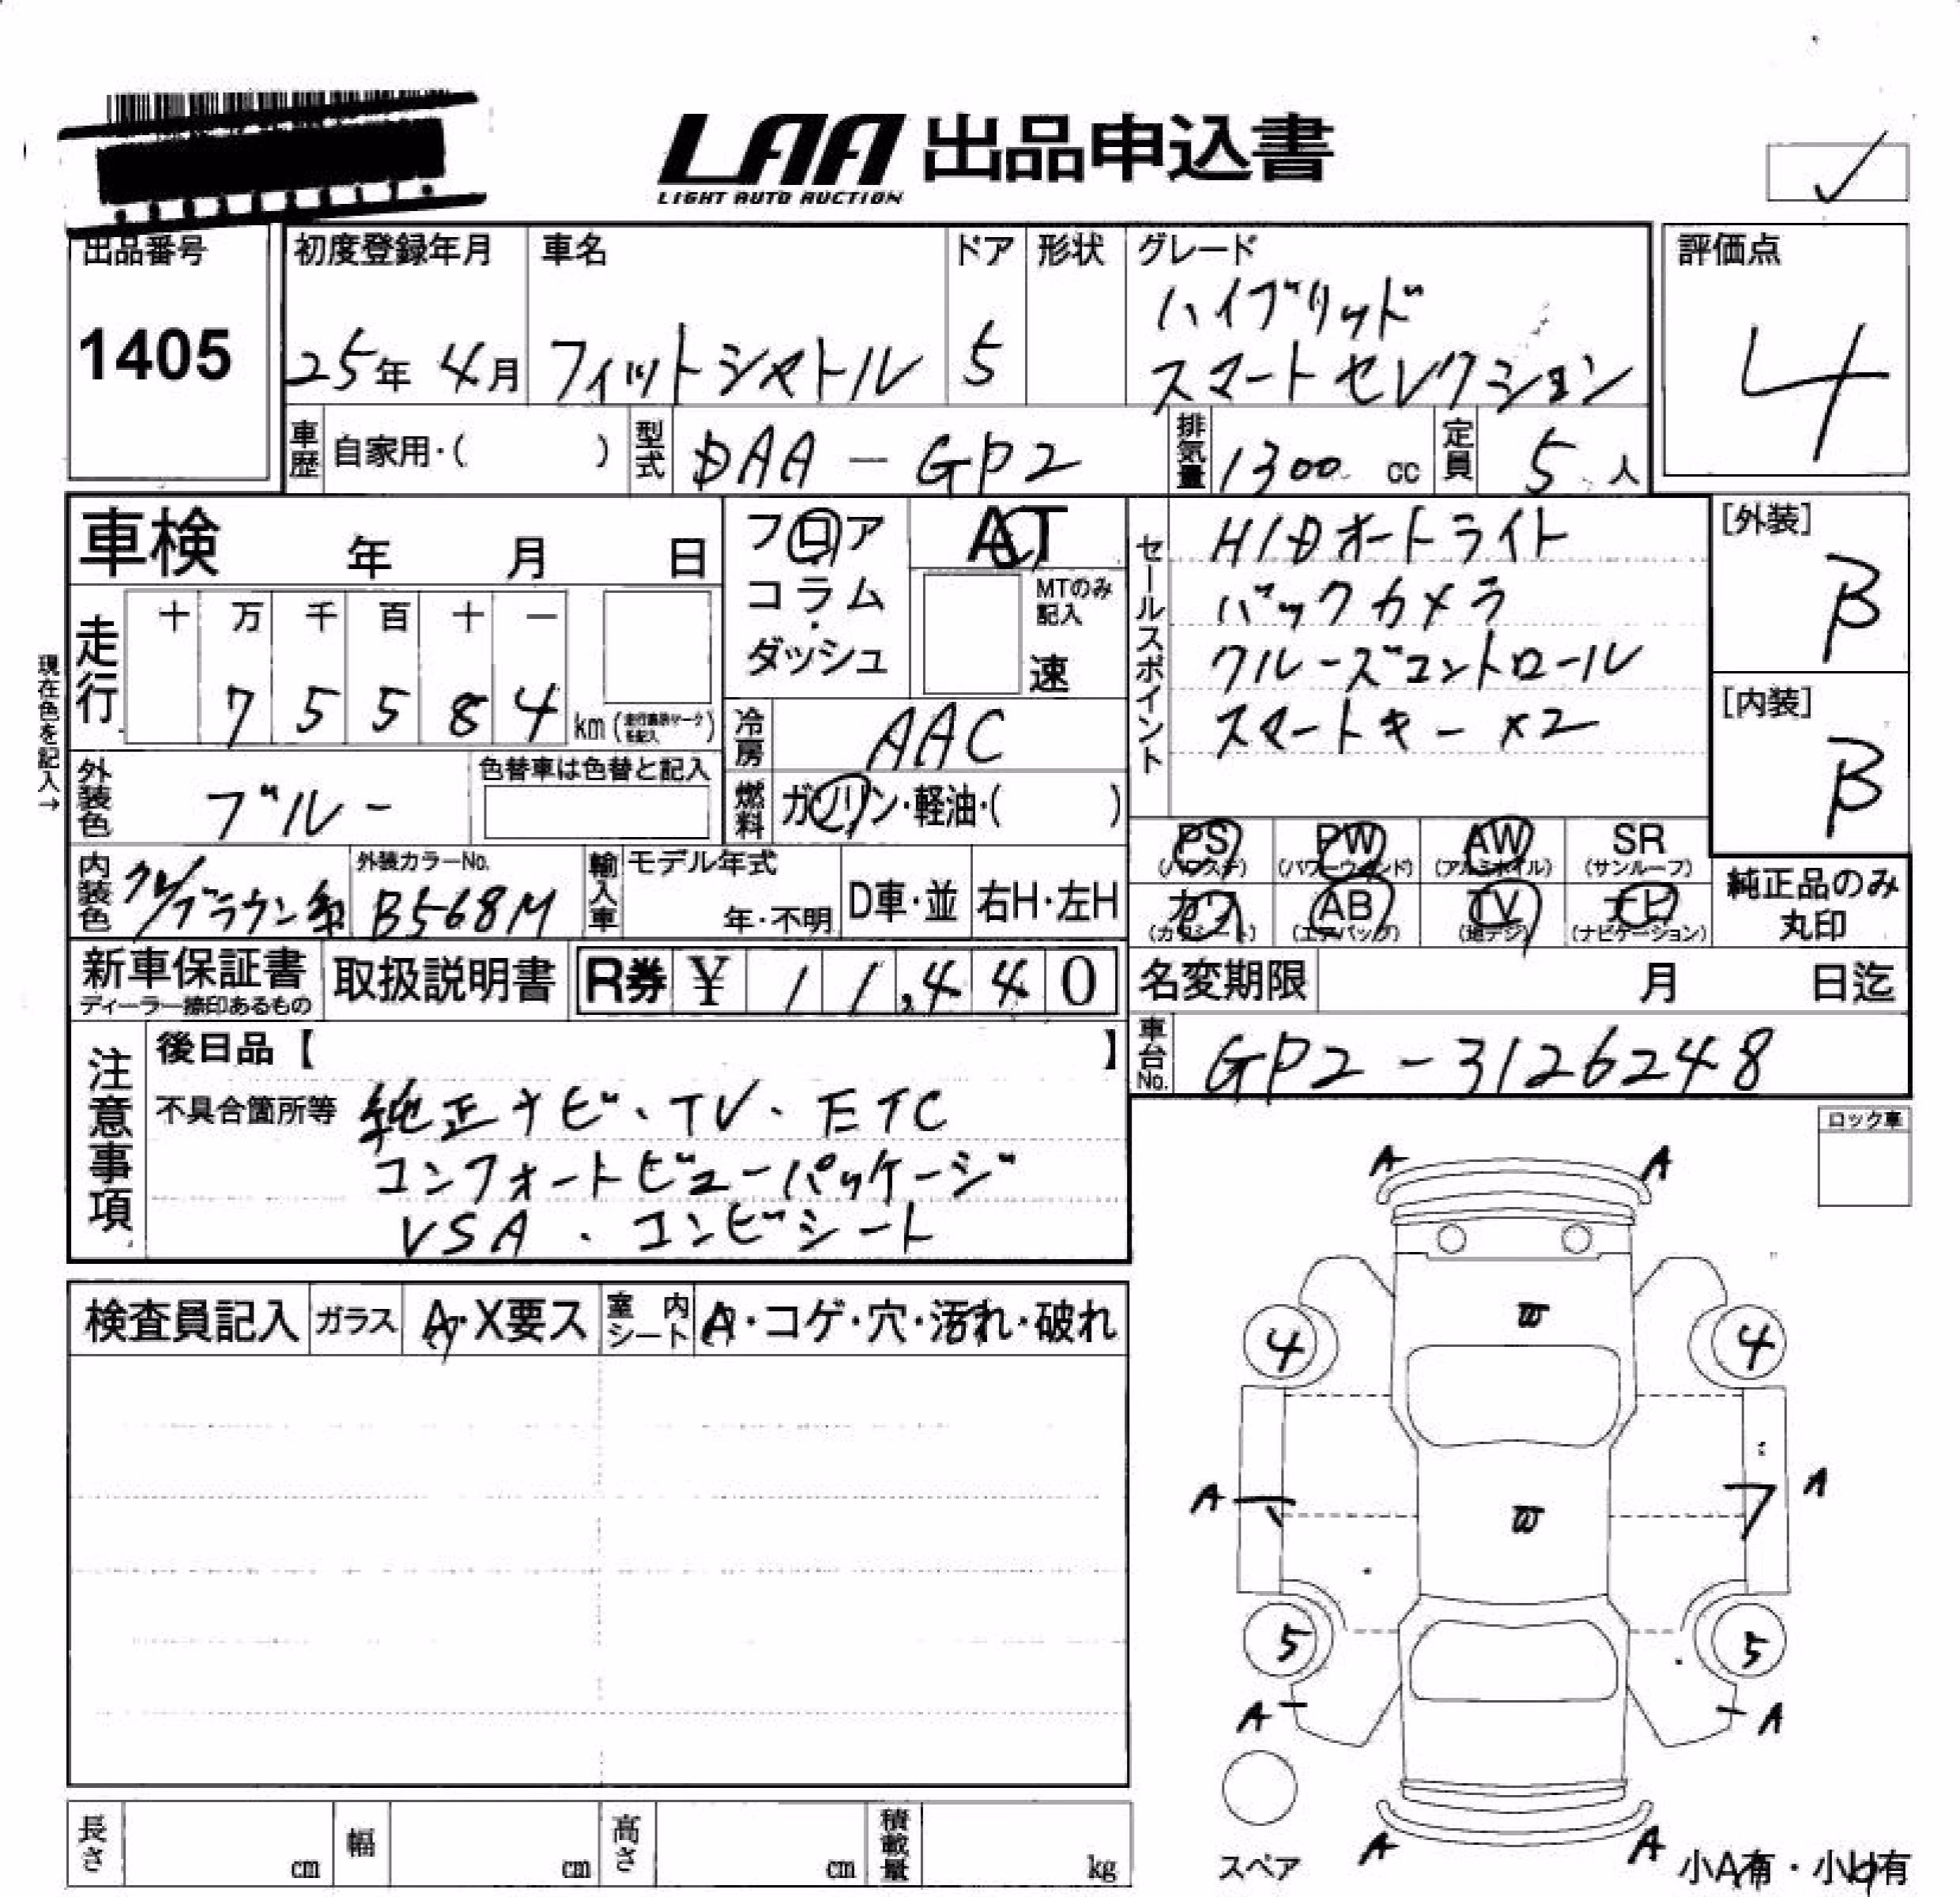 LAA 出品申込書
LIGHT AUTO AUCTION
出品番号
1405
初度登録年月
25年 4月
車名
フィットシャトル
ドア
5
形状
グレード
ハイブリッド
スマートセレクション
評価点
4
車歴 自家用・( )
型式 DAA-GP2
排気量 1300 cc
定員 5 人
車検 年 月 日
フロア
コラム・
ダッシュ
AT
MTのみ
記入
速
セールスポイント
HIDオートライト
バックカメラ
クルーズコントロール
スマートキー ×2
[外装]
B
[内装]
B
現在色を記入→
走行
十 万 千 百 十 一
7 5 5 8 4 km
冷房 AAC
外装色 ブルー
色替車は色替と記入
燃料 ガソリン・軽油・( )
PS PW AW SR
(パワステ) (パワーウィンド) (アルミホイル) (サンルーフ)
カワ AB TV ナビ
(カワシート) (エアバッグ) (地デジ) (ナビゲーション)
純正品のみ
丸印
内装色 ブラウン系
外装カラーNo.
B568M
輸入車
モデル年式
年・不明
D車・並
右H・左H
新車保証書
ディーラー捺印あるもの
取扱説明書
R券 ¥ 11,440
名変期限 月 日迄
車台No. GP2-3126248
注意事項
後日品【 】
不具合箇所等 純正ナビ、TV、ETC
コンフォートビューパッケージ
VSA、コンビシート
ロック車
検査員記入
ガラス
A・X要ス
室内シート
A・コゲ・穴・汚れ・破れ
A A
W
4 4
A A
W
5 5
A A
スペア
A A
小A有・小U有
長さ cm
幅 cm
高さ cm
積載量 kg